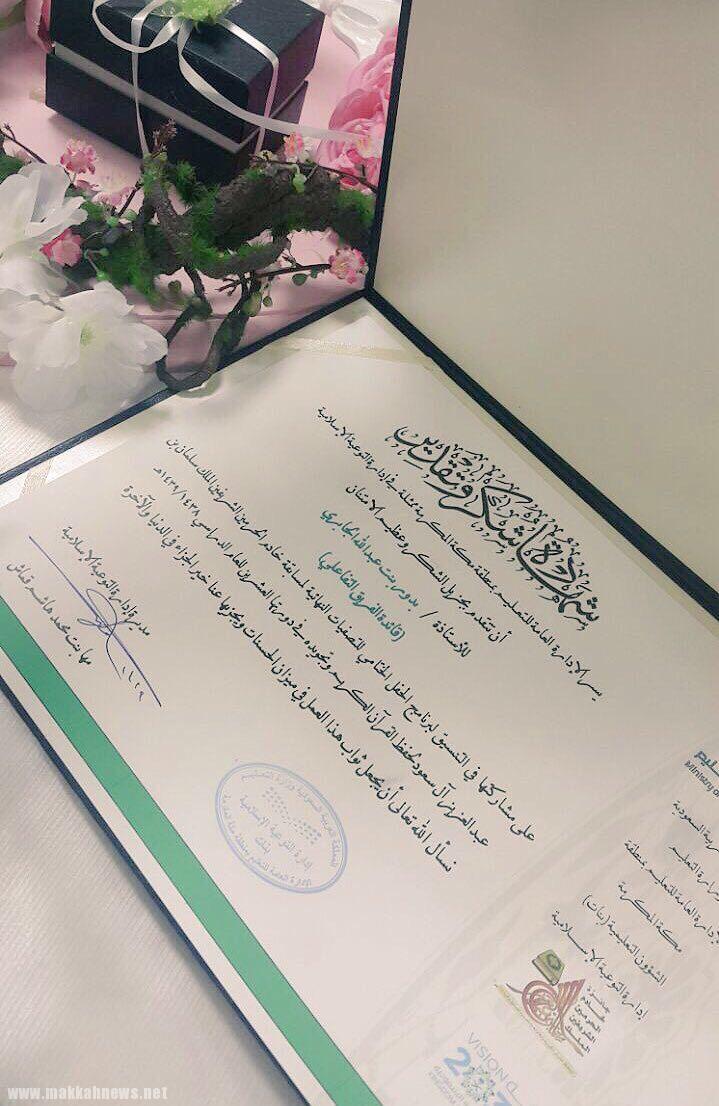 شهادة شكر وتقدير
يسر الإدارة العامة للتعليم بمنطقة مكة المكرمة ممثلة في إدارة التوعية الإسلامية
أن تتقدم بجزيل الشكر وعظيم الامتنان
للأستاذة / بدور بنت عبدالله الجابري
(قائدة الفريق التفاعلي)
على مشاركتها في التنسيق لبرنامج الحفل الختامي للتصفيات النهائية لمسابقة خادم الحرمين الشريفين الملك سلمان بن
عبدالعزيز آل سعود لحفظ القرآن الكريم وتجويده في دورتها العشرين للعام الدراسي ١٤٣٨/١٤٣٩هـ
نسأل الله تعالى أن يجعل ثواب هذا العمل في ميزان الحسنات ويجزيها عنا خير الجزاء في الدنيا والآخرة
مديرة إدارة التوعية الإسلامية
مها بنت محمد هاشم قماش
المملكة العربية السعودية وزارة التعليم
إدارة التوعية الإسلامية
بنات
Ministry of
السعودية
وزارة التعليم
الإدارة العامة للتعليم بمنطقة
مكة المكرمة
الشؤون التعليمية (بنات)
إدارة التوعية الإسلامية
جائزة
خادم
الحرمين
الشريفين
الملك
VISION
www.makkahnews.net